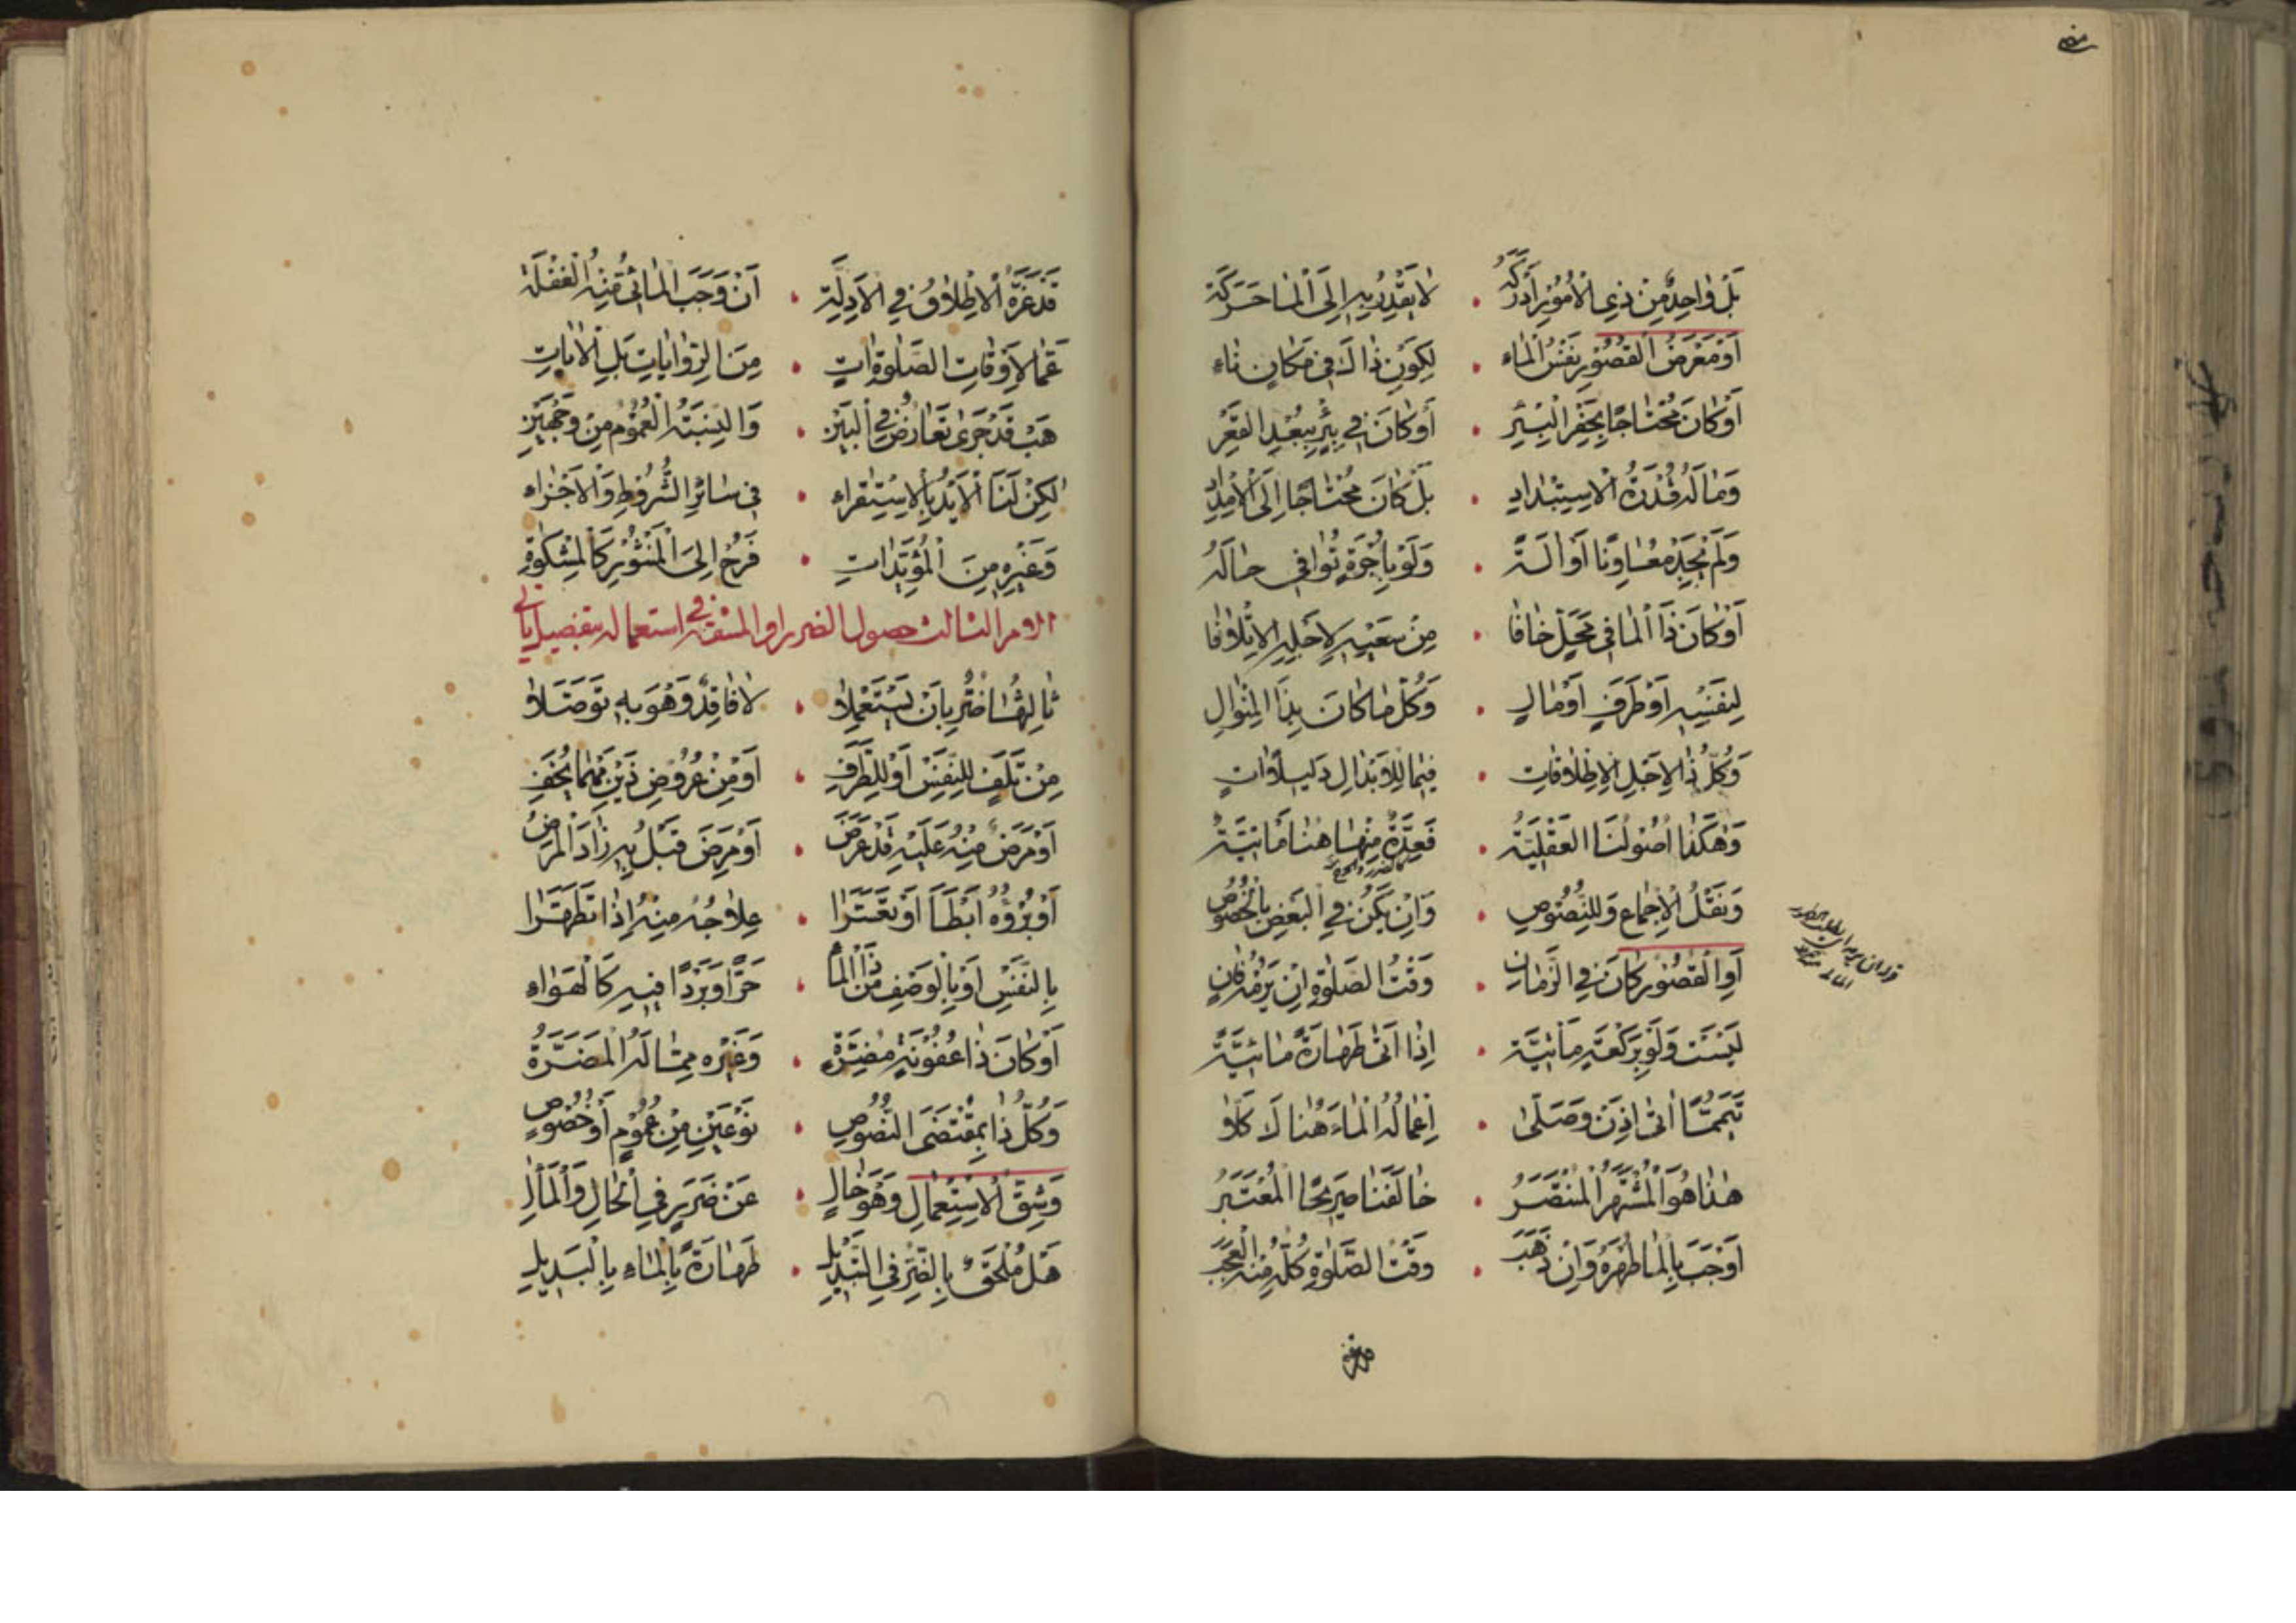 بَلْ وٰاحِدٌ مِنْ ذِي الْأُمُورِ أَدْرَكَهُ • لٰا يَقْدِرُ بِهِ إِلَى الْمٰا حَرَكَةً
أَوْ مَعْرَضُ الْقُصُورِ نَفْسُ الْمٰاءِ • لِكَوْنِ ذٰاكَ فِي مَكٰانٍ نٰاءٍ
أَوْ كٰانَ مُحْتٰاجًا بِحَفْرِ الْبِئْرِ • أَوْ كٰانَ فِي بِئْرٍ بِبُعْدِ الْقَعْرِ
وَمٰا لَهُ قُدْرَةُ الْاِسْتِبْدٰادِ • بَلْ كٰانَ مُحْتٰاجًا إِلَى الْأَمْدٰادِ
وَلَمْ يَجِدْ مُعٰاوِنًا أَوْ آلَةً • وَلَوْ بِأُجْرَةٍ تُوٰافِي حٰالَهُ
أَوْ كٰانَ ذَا الْمٰا فِي مَحَلٍّ خٰافٰا • مِنْ سَعْيِهِ لِأَجْلِهِ الْإِتْلٰافٰا
لِنَفْسِهِ أَوْ طَرَفٍ أَوْ مٰالٍ • وَكُلُّ مٰا كٰانَ بِذَا الْمِنْوٰالِ
وَكُلُّ ذٰا لِأَجْلِ الْإِطْلٰاقٰاتِ • فِيمٰا لِلْأَبْدٰالِ دَلِيلًا وٰاتٍ
وَهٰكَذٰا أُصُولُنَا الْعَقْلِيَّةُ • فَعِدَّةٌ مِنْهٰا هُنٰا مَأْتِيَّةٌ
وَنَقْلُ الْإِجْمٰاعِ وَلِلنُّصُوصِ • وَإِنْ يَكُنْ فِي الْبَعْضِ بِالْخُصُوصِ
أَوِ الْقُصُورُ كٰانَ فِي الزَّمٰانِ • وَقْتُ الصَّلٰوةِ إِنْ يَرُمْهُ فٰانٍ
لَيْسَتْ وَلَوْ بِرَكْعَةٍ مَأْتِيَّةً • إِذٰا أَتٰى طَهٰارَةً مٰائِيَّةً
تَيَمُّمًا أَتٰى إِذَنْ وَصَلّٰى • إِعْمٰالُهُ الْمٰاءَ هُنٰالَكَ كَلّٰا
هٰذٰا هُوَ الْمُشْتَهَرُ الْمُنْتَصَرُ • خٰالَفَنٰا صَرِيحًا الْمُعْتَبَرُ
أَوْجَبَ بِالْمٰا طُهْرَهُ وَإِنْ ذَهَبَ • وَقْتُ الصَّلٰوةِ كُلُّهُ مِنْهُ الْعَجَبُ
قَدْ غَرَّهُ الْإِطْلٰاقُ فِي الْأَدِلَّةِ • أَنْ وَجَبَ الْمٰائِيُّ مِنْهُ الْغَفْلَةُ
عَمّٰا لِأَوْقٰاتِ الصَّلٰوةِ اٰتٍ • مِنَ الرِّوٰايٰاتِ بَلِ الْاٰيٰاتِ
هَبْ قَدْ جَرٰى تَعٰارُضٌ فِي الْبَيْنِ • وَالنِّسْبَةُ الْعُمُومُ مِنْ وَجْهَيْنِ
لٰكِنْ لَنَا الْأَيْدُ بِالْاِسْتِقْرٰاءِ • فِي سٰائِرِ الشُّرُوطِ وَالْأَجْزٰاءِ
وَغَيْرِهِ مِنَ الْمُؤَيِّدٰاتِ • فَرُحْ إِلَى الْمَنْثُورِ كَالْمِشْكٰوةِ
الامر الثالث حصول الضرر او المشقة في استعماله بتفصيل ياتي
ثٰالِثُهٰا ضُرٌّ بِأَنْ يَسْتَعْمِلٰا • لٰا فٰاقِدٌ وَهُوَ بِهِ تَوَصَّلٰا
مِنْ تَلَفٍ لِلنَّفْسِ أَوْ لِلطَّرَفِ • أَوْ مِنْ عُرُوضِ ذَيْنِ مَهْمٰا يَخَفِ
أَوْ مَرَضٌ مِنْهُ عَلَيْهِ قَدْ عَرَضَ • أَوْ مَرَضٌ قَبْلُ بِهِ زٰادَ الْمَرَضُ
أَوْ بُرْؤُهُ أَبْطَأَ أَوْ تَعَسَّرٰا • عِلٰاجُهُ مِنْهُ إِذٰا تَطَهَّرٰا
بِالنَّفْسِ أَوْ بِالْوَصْفِ مِنْ ذَا الْمٰاءِ • حَرًّا وَبَرْدًا فِيهِ كَالْهَوٰاءِ
أَوْ كٰانَ ذٰا عُفُونَةٍ مُضِرَّةٍ • وَغَيْرِهِ مِمّٰا لَهُ الْمَضَرَّةُ
وَكُلُّ ذٰا بِمُقْتَضَى النُّصُوصِ • نَوْعَيْنِ مِنْ عُمُومٍ أَوْ خُصُوصٍ
وَشِقُّ الْاِسْتِعْمٰالِ وَهُوَ خٰالٍ • عَنْ ضَرَرٍ فِي الْحٰالِ وَالْمَآلِ
هَلْ مُلْحَقٌ بِالضُّرِّ فِي التَّبْدِيلِ • طَهٰارَةً بِالْمٰاءِ بِالْبَدِيلِ